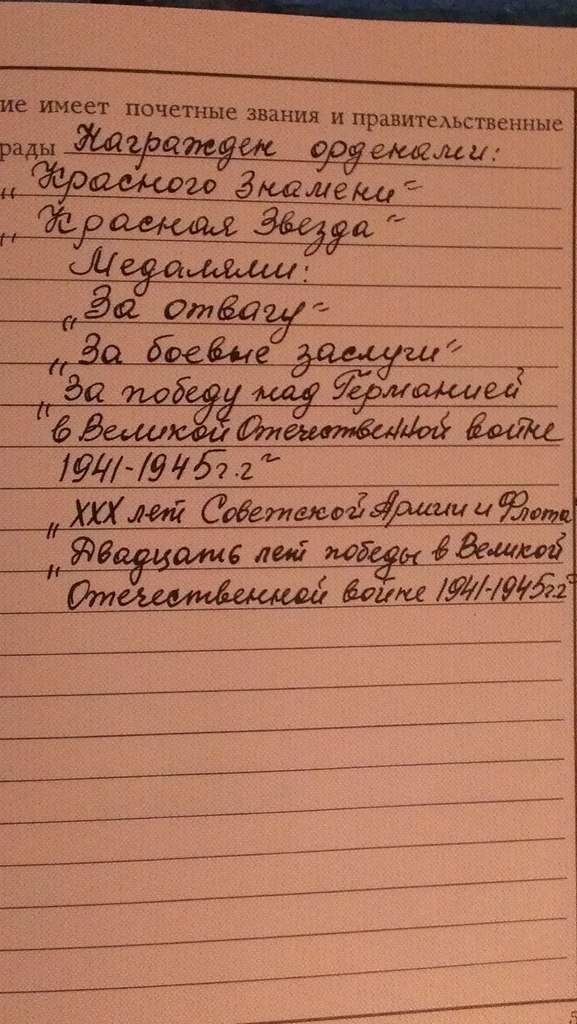 ие имеет почетные звания и правительственные
рады Награжден орденами:
„Красного Знамени"
„Красная Звезда"
Медалями:
„За отвагу"
„За боевые заслуги"
„За победу над Германией
в Великой Отечественной войне
1941-1945г.г"
„XXX лет Советской Армии и Флота"
„Двадцать лет победы в Великой
Отечественной войне 1941-1945г.г"